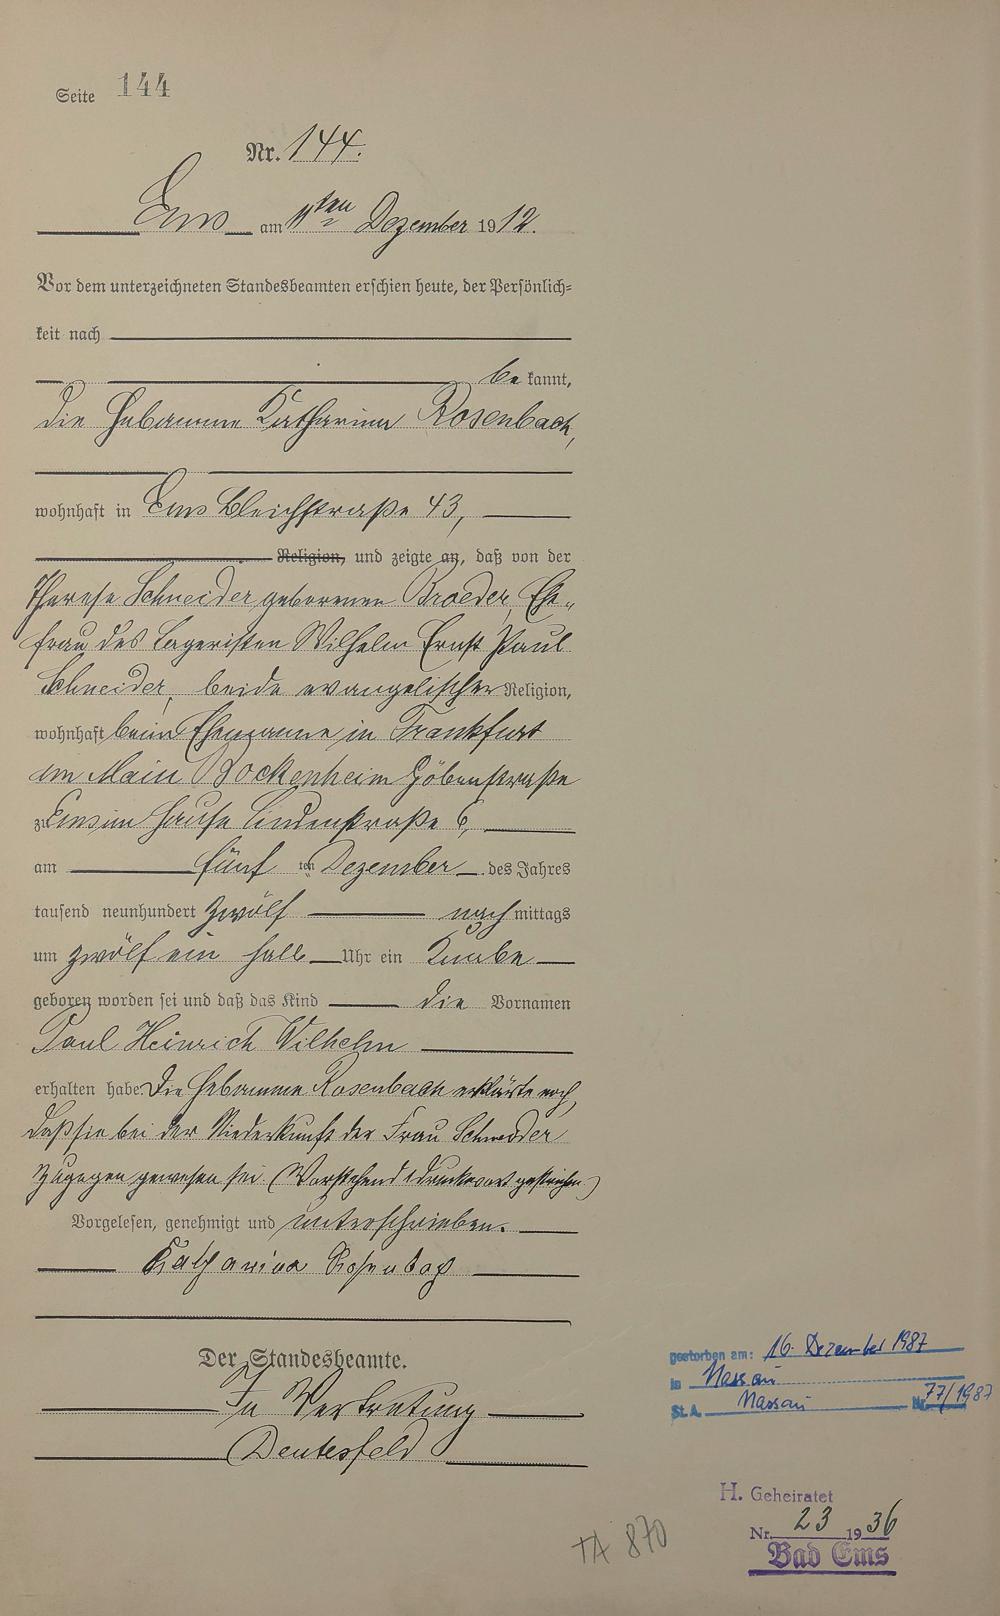 Seite 144
Nr. 144.
Ems am 11ten Dezember 1912.
Vor dem unterzeichneten Standesbeamten erschien heute, der Persönlich=
keit nach
be kannt,
die Hebamme Katharina Rosenbach,
wohnhaft in Ems Bleichstraße 43,
Religion, und zeigte an, daß von der
Therese Schneider geborenen Broeder, Ehe„
frau des Lageristen Wilhelm Ernst Paul
Schneider, beide evangelischer Religion,
wohnhaft beim Ehemanne in Frankfurt
am Main Bockenheim Göbenstraße
zu Ems im Hause Lindenstraße 6,
am fünf ten Dezember des Jahres
tausend neunhundert zwölf nach mittags
um zwölf ein halb Uhr ein Knabe
geboren worden sei und daß das Kind die Vornamen
Paul Heinrich Wilhelm
erhalten habe. Die Hebamme Rosenbach erklärte noch,
daß sie bei der Niederkunft der Frau Schneider
zugegen gewesen sei. (Vorstehend 1 Druckwort gestrichen.)
Vorgelesen, genehmigt und unterschrieben.
Katharina Rosenbach
Der Standesbeamte.
In Vertretung
Deutesfeld
gestorben am: 16. Dezember 1987
in Nassau
St.A. Nassau Nr. 77/1987
H. Geheiratet
Nr. 23 1936
Bad Ems
TA 870